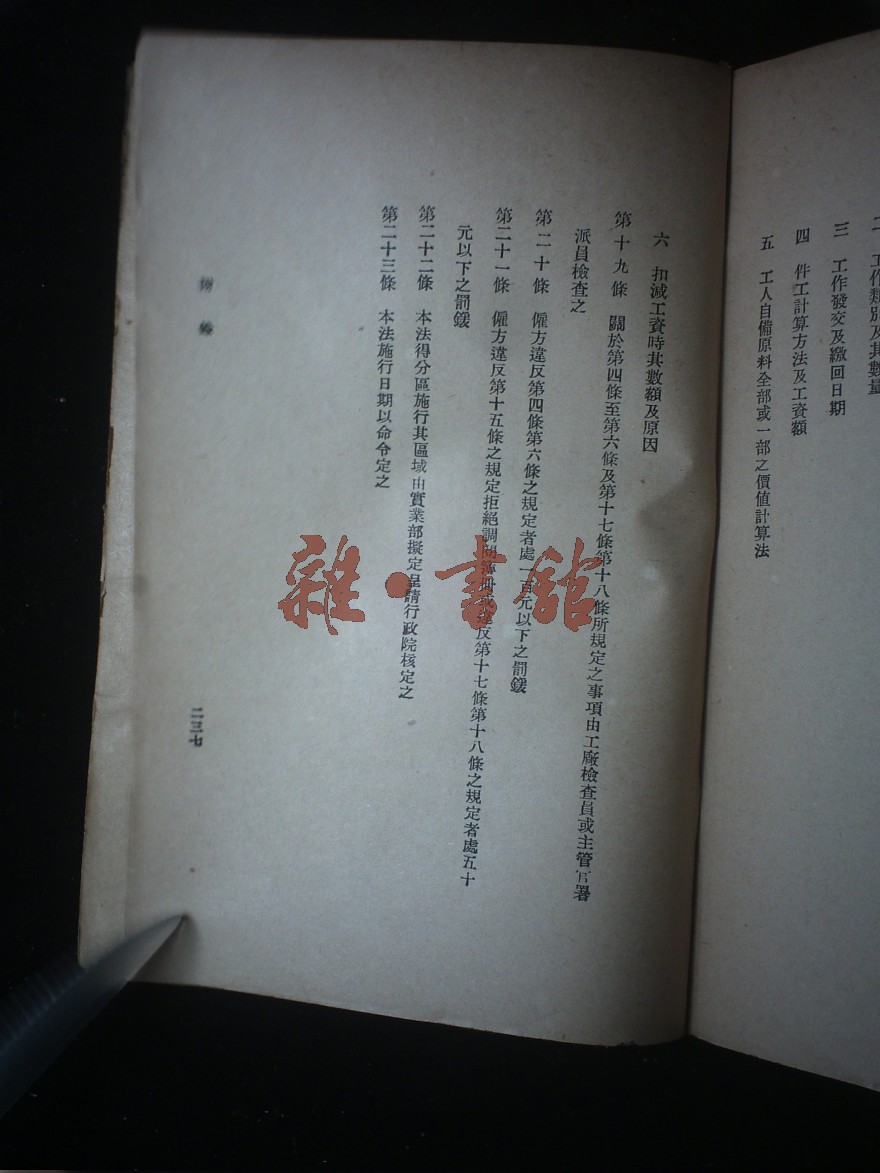 工作類別及其數量
三　工作發交及繳回日期
四　件工計算方法及工資額
五　工人自備原料全部或一部之價値計算法
六　扣減工資時其數額及原因
第十九條　關於第四條至第六條及第十七條第十八條所規定之事項由工廠檢查員或主管官署
派員檢查之
第二十條　僱方違反第四條第六條之規定者處一百元以下之罰鍰
第二十一條　僱方違反第十五條之規定拒絕調閱簿册或違反第十七條第十八條之規定者處五十
元以下之罰鍰
第二十二條　本法得分區施行其區域由實業部擬定呈請行政院核定之
第二十三條　本法施行日期以命令定之
附錄
二三七
雜·書館